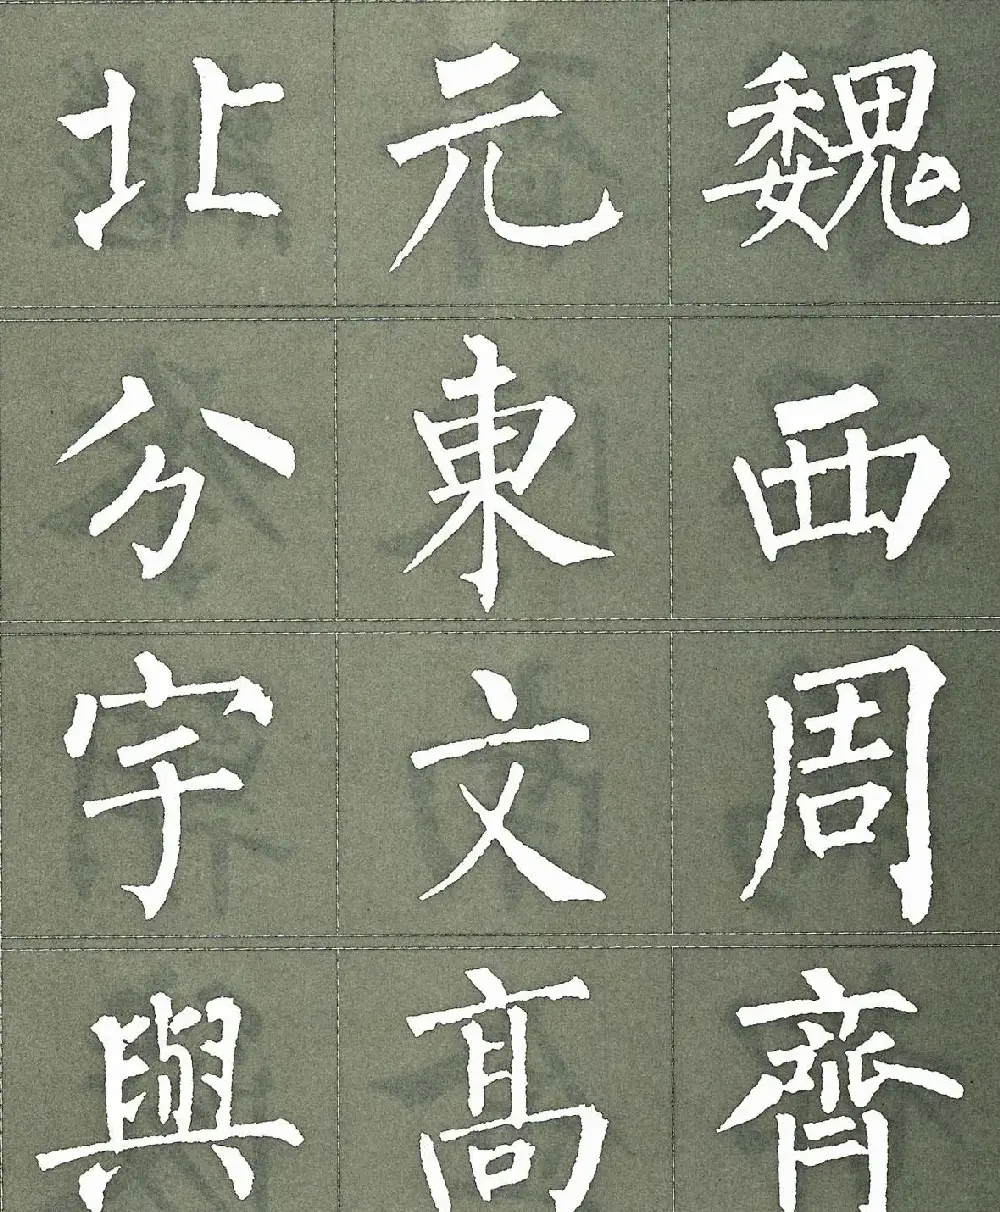 北元魏
分東西
宇文周
與髙齊